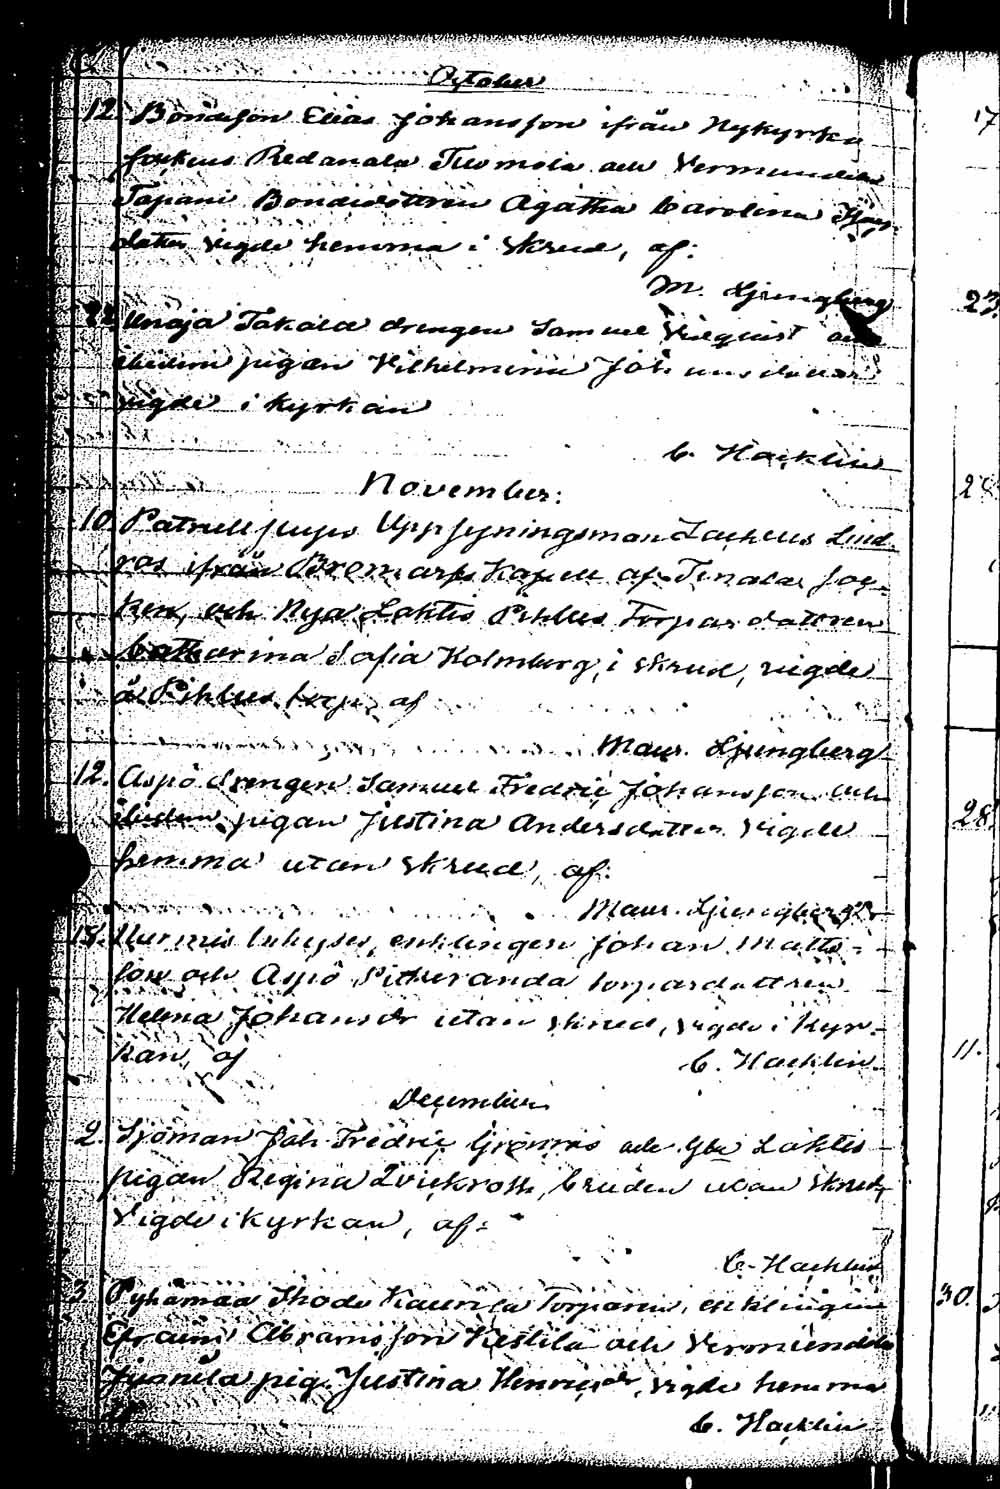 October
12. Bondeson Elias Johansson ifrån Nykyrko
sockens Redanala Tuomola och Vermundila
Tapani Bondedottren Agatha Carolina
dotter vigde hemma i skrud, af:
M. Ljungberg
22. Unaja Takala drengen Samuel och
ibidem pigan Vilhelmina Johansdotter
vigde i kyrkan
C. Hacklin
November:
10. Uppsyningsman Zacheus Lind-
ros ifrån Bromarfs Kapell af Tenala Soc-
ken, och Nya Lahtis Pihlus Torpar dottren
Catharina Sofia Holmberg, i skrud, vigde
å Pihlus torp, af
Maur. Ljungberg
12. Aspö drengen Samuel Fredric Johansson och
ibidem pigan Justina Andersdotter vigde
hemma utan skrud, af:
Maur. Ljungberg
18. Nurmis Inhyses, enklingen Johan Matts-
son och Aspö Pitkeranda torpardottren
Helena Johansdr utan skrud, vigde i Kyr-
kan, af C. Hacklin.
December
2. Sjöman Joh. Fredric Grönroos och Lahtis
pigan Regina Qvickroth, bruden utan skrud,
Vigde i kyrkan, af:
C. Hacklin
3. Pyhämaa Ihode Kaunela Torparen, enklingen
Efraim Abramsson Kestilä och Vermundila
pig. Justina Henricsdr, vigde hemma
C. Hacklin
17
23.
28.
11.
30.